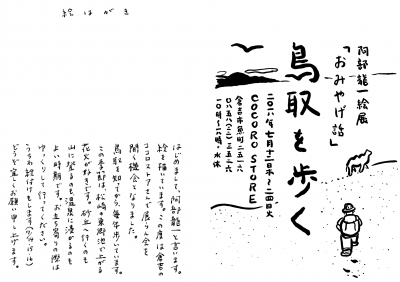 絵はがき
阿部龍一絵展
「おみやげ話」
鳥取を歩く
二〇一八年七月十二日木〜二四日火
COCORO STORE
倉吉市魚町二五一六
〇八五八(二二)三五二六
一〇時〜一八時・水休
はじめまして、阿部龍一と言います。
絵を描いています。この度は倉吉の
ココロストアさんで展らん会を
開く機会となりました。
鳥取を知ってから、毎年歩いています。
この季節は、松崎・東郷池で上がる
花火が好きです。砂丘へ行くのも
山に登るのも温泉に浸かるのも
よい時期です。お立ち寄りの際は
ゆっくりして行ってください。
うちわ絵付けもします(7/14,15,16)
どうぞ宜しくお願い申し上げます。